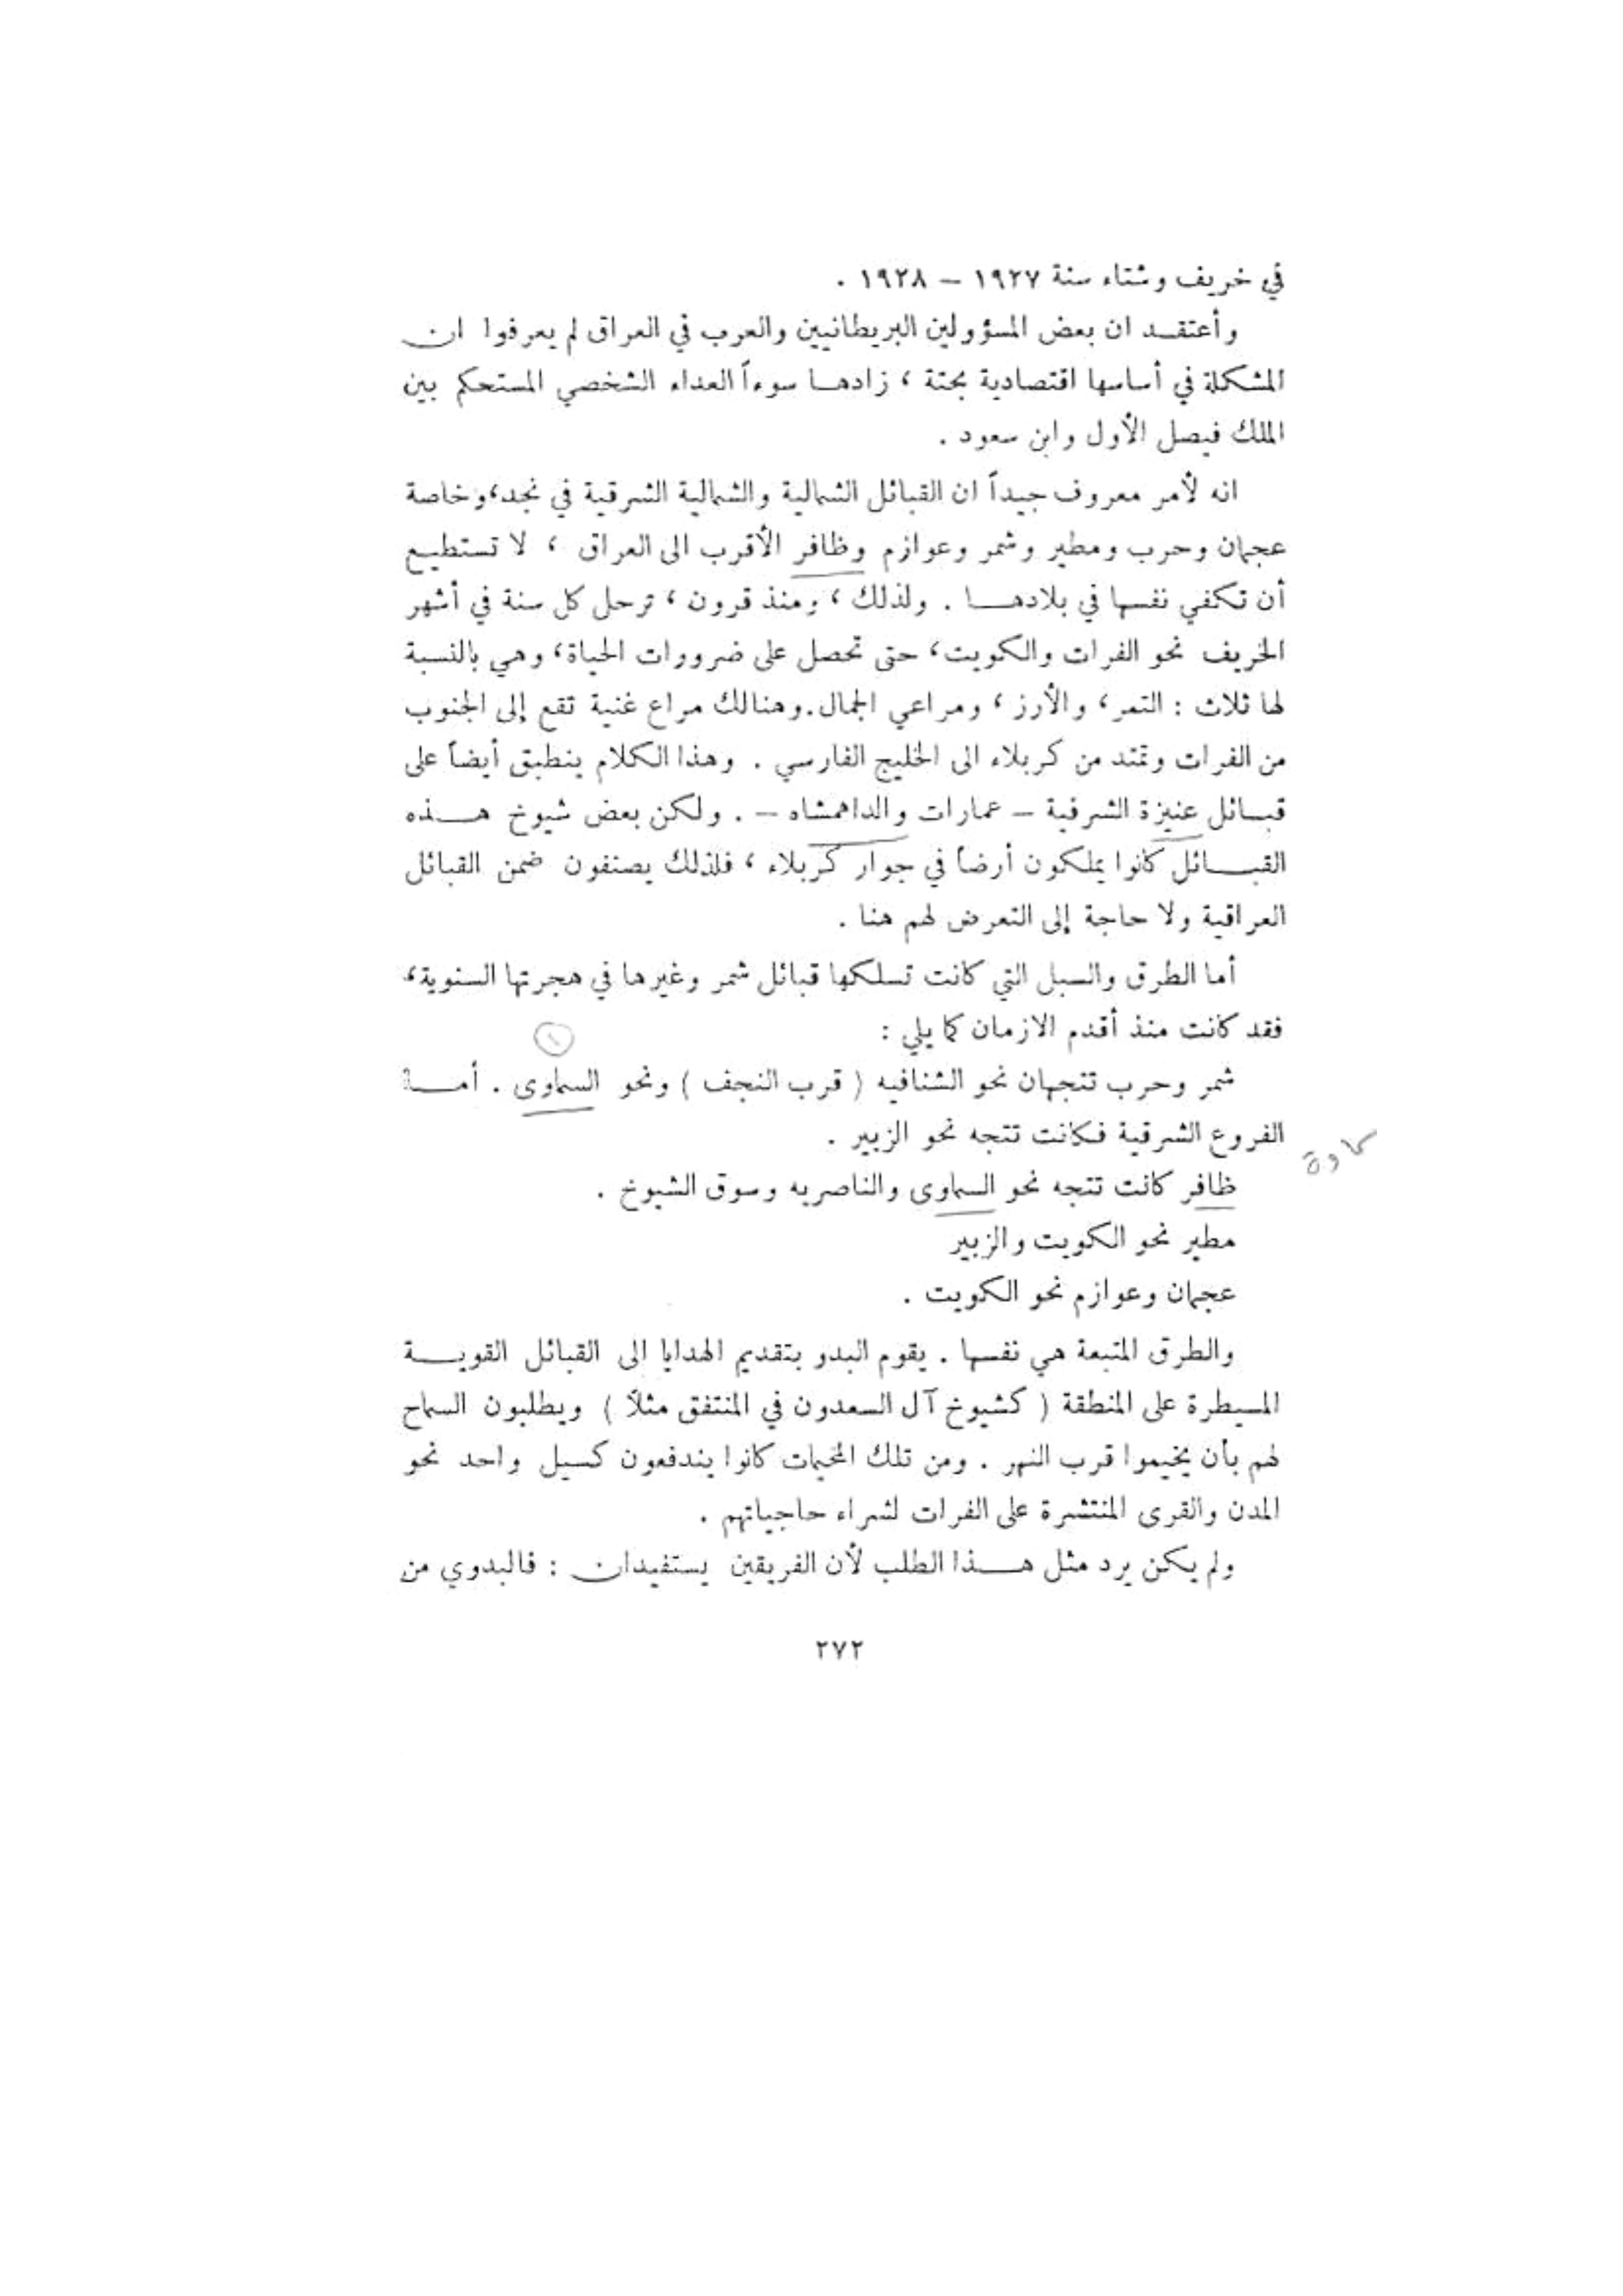 في خريف وشتاء سنة ١٩٢٧ – ١٩٢٨ .
وأعتقد ان بعض المسؤولين البريطانيين والعرب في العراق لم يعرفوا ان
المشكلة في أساسها اقتصادية بحتة ، زادها سوءاً العداء الشخصي المستحكم بين
الملك فيصل الأول وابن سعود .
انه لأمر معروف جيداً ان القبائل الشمالية والشمالية الشرقية في نجد، وخاصة
عجمان وحرب ومطير وشمر وعوازم وظافر الأقرب الى العراق ، لا تستطيع
أن تكفي نفسها في بلادها . ولذلك ، ومنذ قرون ، ترحل كل سنة في أشهر
الخريف نحو الفرات والكويت، حتى تحصل على ضرورات الحياة، وهي بالنسبة
لها ثلاث : التمر، والأرز ، ومراعي الجمال. وهنالك مراع غنية تقع إلى الجنوب
من الفرات وتمتد من كربلاء الى الخليج الفارسي . وهذا الكلام ينطبق أيضاً على
قبائل عنيزة الشرقية – عمارات والداهمشاه – . ولكن بعض شيوخ هذه
القبائل كانوا يملكون أرضاً في جوار كربلاء ، فلذلك يصنفون ضمن القبائل
العراقية ولا حاجة إلى التعرض لهم هنا .
أما الطرق والسبل التي كانت تسلكها قبائل شمر وغيرها في هجرتها السنوية،
فقد كانت منذ أقدم الازمان كما يلي :
١
شمر وحرب تتجهان نحو الشنافيه ( قرب النجف ) ونحو السماوى . أما
الفروع الشرقية فكانت تتجه نحو الزبير .
سماوة
ظافر كانت تتجه نحو السماوى والناصريه وسوق الشيوخ .
مطير نحو الكويت والزبير
عجمان وعوازم نحو الكويت .
والطرق المتبعة هي نفسها . يقوم البدو بتقديم الهدايا الى القبائل القوية
المسيطرة على المنطقة ( كشيوخ آل السعدون في المنتفق مثلاً ) ويطلبون السماح
لهم بأن يخيموا قرب النهر . ومن تلك المخيمات كانوا يندفعون كسيل واحد نحو
المدن والقرى المنتشرة على الفرات لشراء حاجياتهم .
ولم يكن يرد مثل هذا الطلب لأن الفريقين يستفيدان : فالبدوي من
٢٧٢